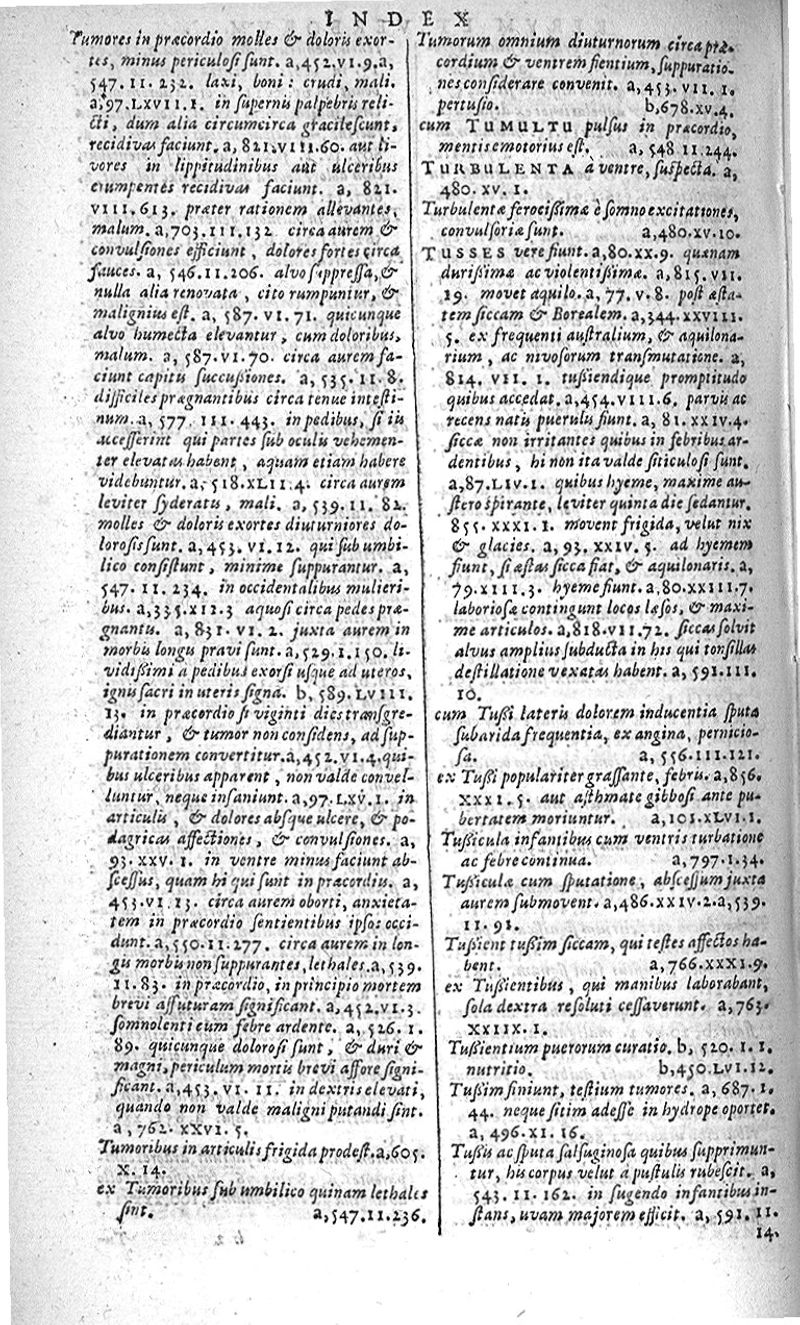 INDEX
Tumores in præcordio molles & doloris exor-
tes, minus periculosi sunt. a, 452. VI. 9. a,
547. II. 232. laxi, boni: crudi, mali.
a, 97. LXVII. I. in supernis palpebris reli-
cti, dum alia circumcirca gracilescunt,
recidivas faciunt. a, 821. VIII. 60. aut li-
vores in lippitudinibus aut ulceribus
erumpentes recidivas faciunt. a, 821.
VIII. 613. præter rationem allevantes,
malum. a, 703. III. 132. circa aurem &
convulsiones efficiunt, dolores fortes circa
fauces. a, 546. II. 206. alvo suppressa, &
nulla alia renovata, cito rumpuntur, &
malignius est. a, 587. VI. 71. quicunque
alvo humecta elevantur, cum doloribus,
malum. a, 587. VI. 70. circa aurem fa-
ciunt capitis succußiones. a, 535. II. 8.
difficiles prægnantibus circa tenue intesti-
num. a, 577. III. 443. in pedibus, si iis
accesserint qui partes sub oculis vehemen-
ter elevatas habent, aquam etiam habere
videbuntur. a, 518. XLII. 4. circa aurem
leviter syderatis, mali. a, 539. II. 82.
molles & doloris exortes diuturniores do-
lorosis sunt. a, 453. VI. 12. qui sub umbi-
lico consistunt, minime suppurantur. a,
547. II. 234. in occidentalibus mulieri-
bus. a, 335. XII. 3 aquosi circa pedes præ-
gnantis. a, 831. VI. 2. juxta aurem in
morbis longis pravi sunt. a, 529. I. 150. li-
vidißimi a pedibus exorsi usque ad uteros,
ignis sacri in uteris signa. b, 589. LVIII.
13. in præcordio si viginti dies transgre-
diantur, & tumor non considens, ad sup-
purationem convertitur. a, 452. VI. 4. qui-
bus ulceribus apparent, non valde convel-
luntur, neque insaniunt. a, 97. LXV. I. in
articulis, & dolores absque ulcere, & po-
dagricas affectiones, & convulsiones. a,
93. XXV. I. in ventre minus faciunt ab-
scessus, quam hi qui sunt in præcordiis. a,
453. VI. 13. circa aurem oborti, anxieta-
tem in præcordio sentientibus ipsos occi-
dunt. a, 550. II. 277. circa aurem in lon-
gis morbis non suppurantes, lethales. a, 539.
II. 83. in præcordio, in principio mortem
brevi affuturam significant. a, 452. VI. 3.
somnolenti cum febre ardente. a, 526. I.
89. quicunque dolorosi sunt, & duri &
magni, periculum mortis brevi affore signi-
ficant. a, 453. VI. 11. in dextris elevati,
quando non valde maligni putandi sint.
a, 762. XXVI. 5.
Tumoribus in articulis frigida prodest. a, 605.
X. 14.
ex Tumoribus sub umbilico quinam lethales
sint. a, 547. II. 236.
Tumorum omnium diuturnorum circa præ-
cordium & ventrem fientium, suppuratio-
nes considerare convenit. a, 453. VII. I.
pertusio. b, 678. XV. 4.
cum TUMULTU pulsus in præcordio,
mentis emotorius est. a, 548 II. 244.
TURBULENTA à ventre, suspecta. a,
480. XV. I.
Turbulentæ ferocissimæ è somno excitationes,
convulsoriæ sunt. a, 480. XV. 10.
TUSSES vere fiunt. a, 80. XX. 9. quænam
durißimæ ac violentißimæ. a, 815. VII.
19. movet aquilo. a, 77. V. 8. post æsta-
tem siccam & Borealem. a, 344. XXVIII.
5. ex frequenti australium, & aquilona-
rium, ac nivosorum transmutatione. a,
814. VII. I. tußiendique promptitudo
quibus accedat. a, 454. VIII. 6. parvis ac
recens natis puerulis fiunt. a, 81. XXIV. 4.
siccæ non irritantes quibus in febribus ar-
dentibus, hi non ita valde siticulosi sunt.
a, 87. LIV. I. quibus hyeme, maxime au-
stero spirante, leviter quinta die sedantur.
855. XXXI. I. movent frigida, velut nix
& glacies. a, 93. XXIV. 5. ad hyemem
fiunt, si æstas sicca fiat, & aquilonaris. a,
79. XIII. 3. hyeme fiunt. a, 80. XXIII. 7.
laboriosæ contingunt locos læsos, & maxi-
me articulos. a, 818. VII. 72. siccas solvit
alvus amplius subducta in his qui tonsillas
destillatione vexatas habent. a, 591. III.
10.
cum Tußi lateris dolorem inducentia sputa
subarida frequentia, ex angina, pernicio-
sa. a, 556. III. 121.
ex Tußi populariter grassante, febris. a, 856.
XXXI. 5. aut asthmate gibbosi ante pu-
bertatem moriuntur. a, 101. XLVI. I.
Tußicula infantibus cum ventris turbatione
ac febre continua. a, 797. I. 34.
Tußiculæ cum sputatione, abscessum juxta
aurem submovent. a, 486. XXIV. 2. a, 539.
II. 91.
Tußient tußim siccam, qui testes affectos ha-
bent. a, 766. XXXI. 9.
ex Tußientibus, qui manibus laborabant,
sola dextra resoluti cessaverunt. a, 763.
XXIIX. I.
Tußientium puerorum curatio. b, 520. I. I.
nutritio. b, 450. LVI. 12.
Tußim finiunt, testium tumores. a, 687. I.
44. neque sitim adesse in hydrope oportet.
a, 496. XI. 16.
Tußis ac sputa salsuginosa quibus supprimun-
tur, his corpus velut à pustulis rubescit. a,
543. II. 162. in sugendo infantibus in-
stans, uvam majorem efficit. a, 591. II.
14.